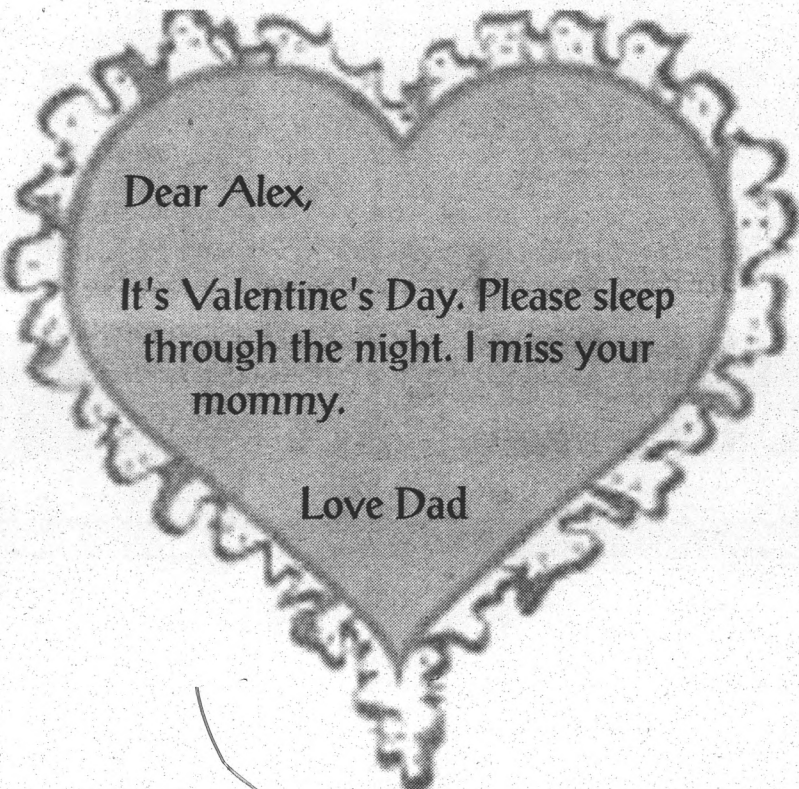 Dear Alex,
It's Valentine's Day. Please sleep
through the night. I miss your
mommy.
Love Dad